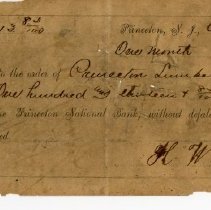 13 83/100 Princeton, N. J.,
One month
the order of Princeton Lumber
One hundred and thirteen & 83/100
he Princeton National Bank, without defal
ed.
H W